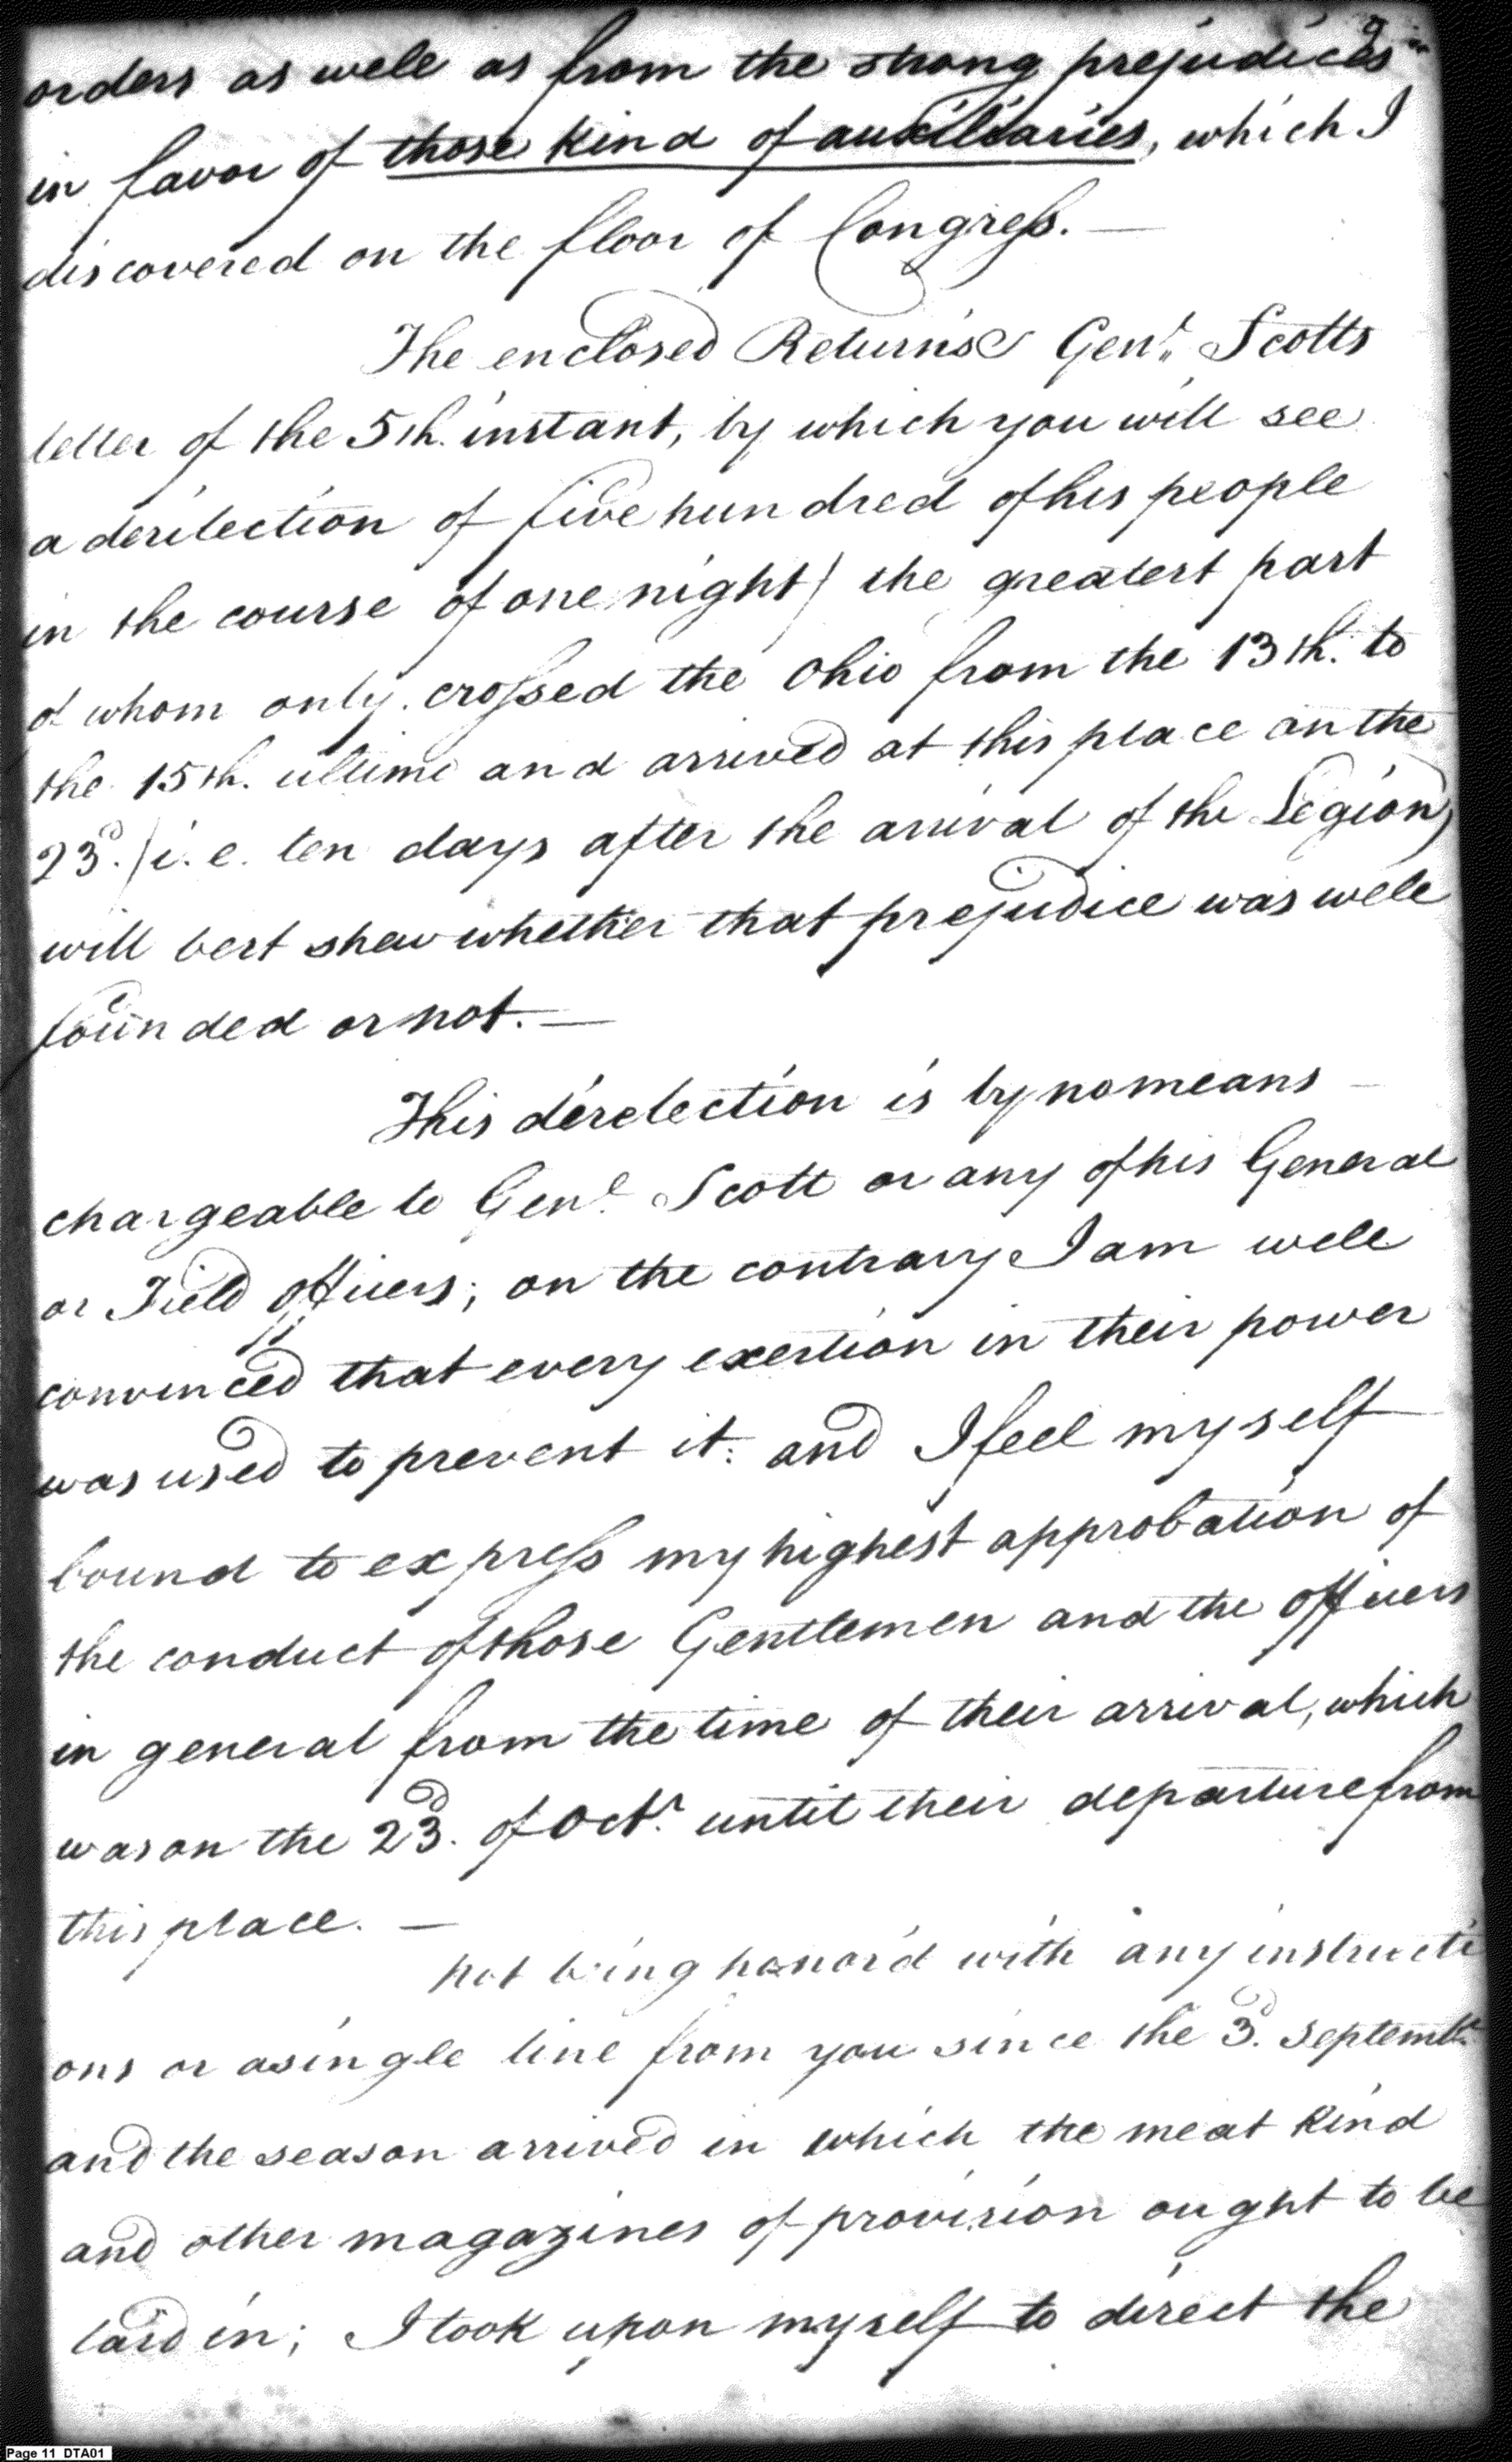 orders as well as from the strong prejudices
in favor of those kind of auxiliaries, which I
discovered on the floor of Congress. —
The enclosed Returns & Genl. Scotts
letter of the 5th. instant, by which you will see
a derilection of five hundred of his people
in the course of one night) the greatest part
of whom only crossed the Ohio from the 13th. to
the 15th. ultimo and arrived at this place on the
23d. (i.e. ten days after the arrival of the Legion)
will best shew whether that prejudice was well
founded or not. —
This derelection is by no means
chargeable to Genl. Scott or any of his General
or Field officers; on the contrary I am well
convinced that every exertion in their power
was used to prevent it: and I feel myself
bound to express my highest approbation of
the conduct of those Gentlemen and the officers
in general from the time of their arrival, which
was on the 23d. of Octr. until their departure from
this place. —
not being honor'd with any instructi
ons or a single line from you since the 3d. Septembr.
and the season arrived in which the meat kind
and other magazines of provision ought to be
laid in; I took upon myself to direct the
Page 11 DTA01